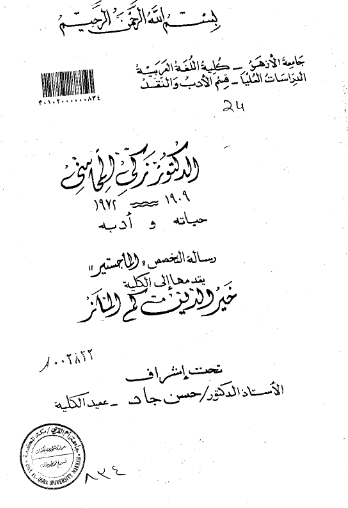 بسم الله الرحمن الرحيم
جامعة الأزهر - كلية اللغة العربية
الدراسات العليا - قسم الأدب والنقد
٣٠١٠٢٠٠٠٠٠٠٨٣٤
24
الدكتور زكي المحاسني
١٩٠٩ - ١٩٧٢
حياته و أدبه
رسالة التخصص "الماجستير"
يقدمها إلى الكلية
خير الدين
٠٠٢٨٢٢
تحت إشراف
الأستاذ الدكتور/ حسن جاد - عميد الكلية
UMM AL-QURA UNIVERSITY MAKKAH
٨٣٤